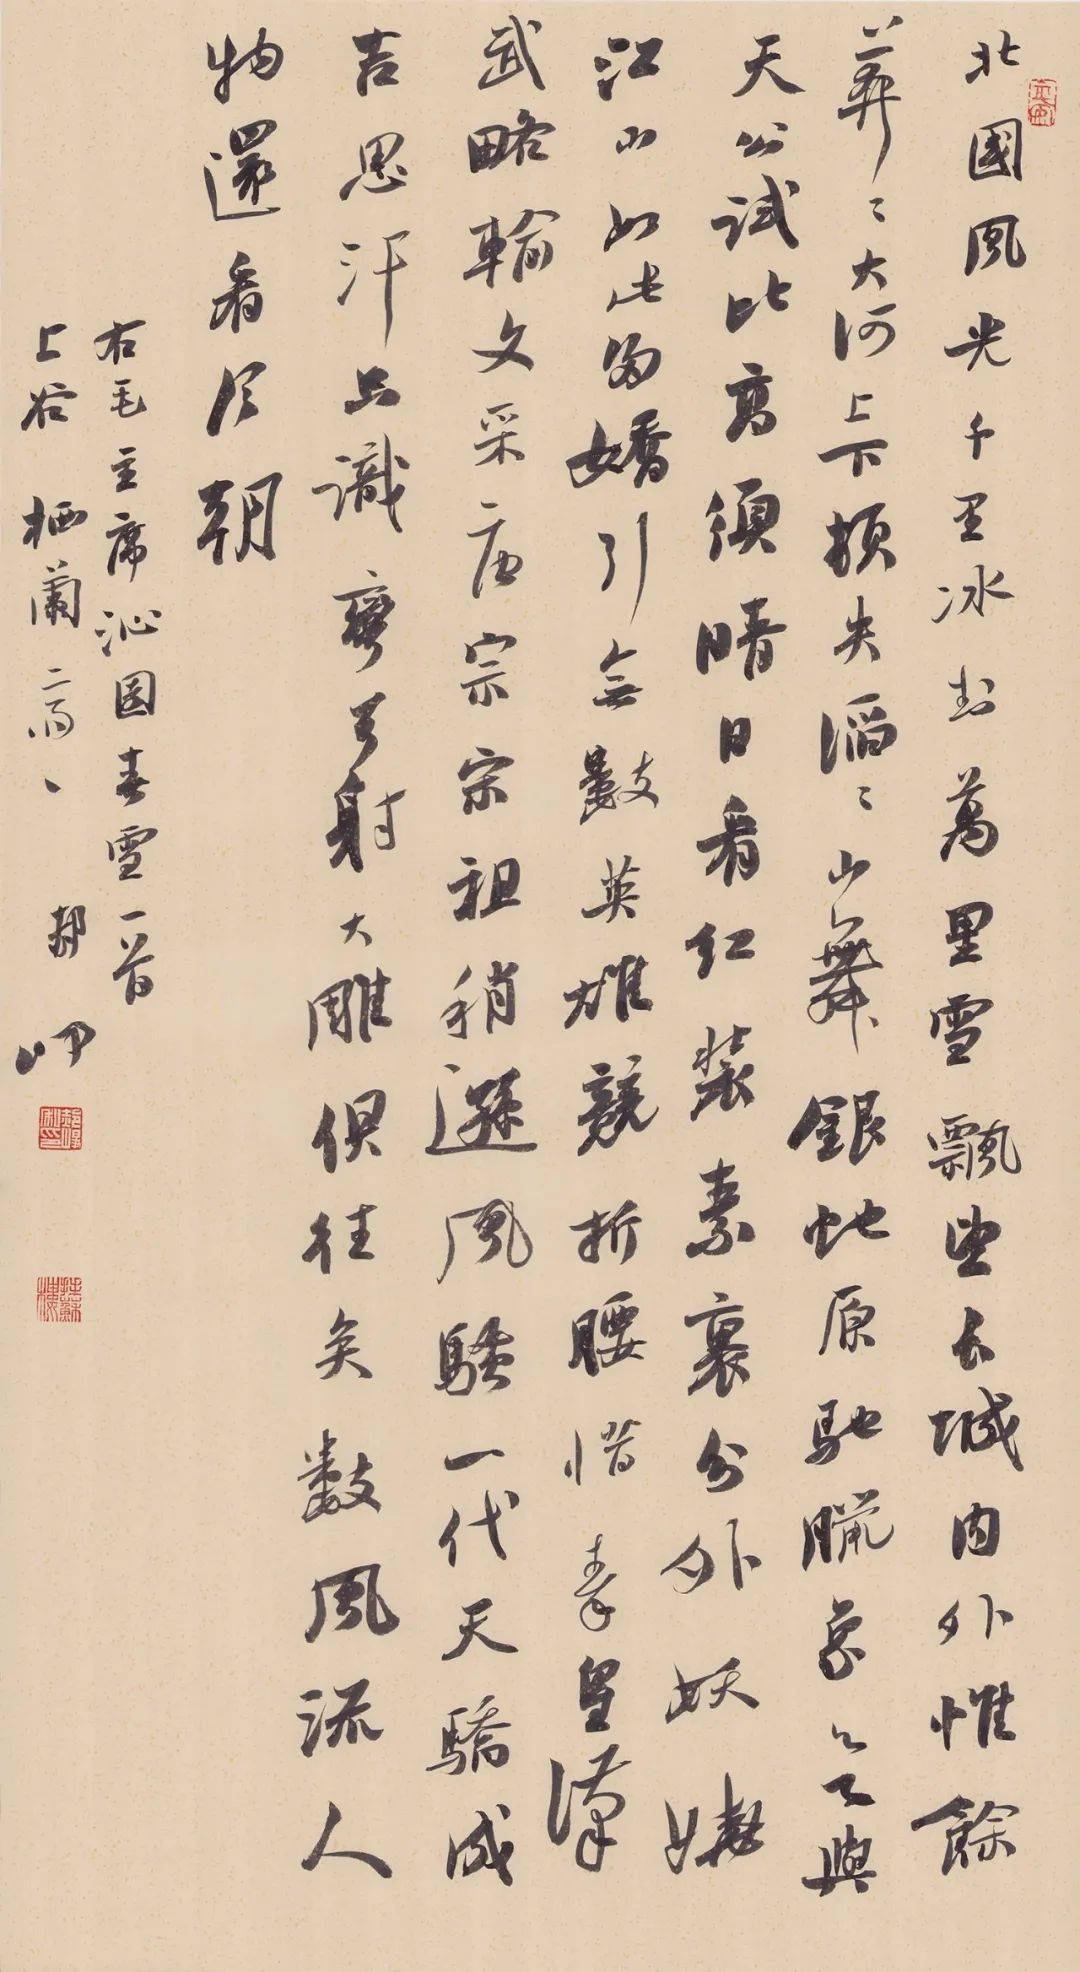 北國風光千里冰封萬里雪飄望長城內外惟餘
莽〻大河上下頓失滔〻山舞銀蛇原馳臘象欲與
天公試比高須晴日看紅裝素裹分外妖嬈
江山如此多嬌引無數英雄競折腰惜秦皇漢
武略輸文采唐宗宋祖稍遜風騷一代天驕成
吉思汗只識彎弓射大雕俱往矣數風流人
物還看今朝
右毛主席沁園春雪一首
上谷栖蘭齋郝